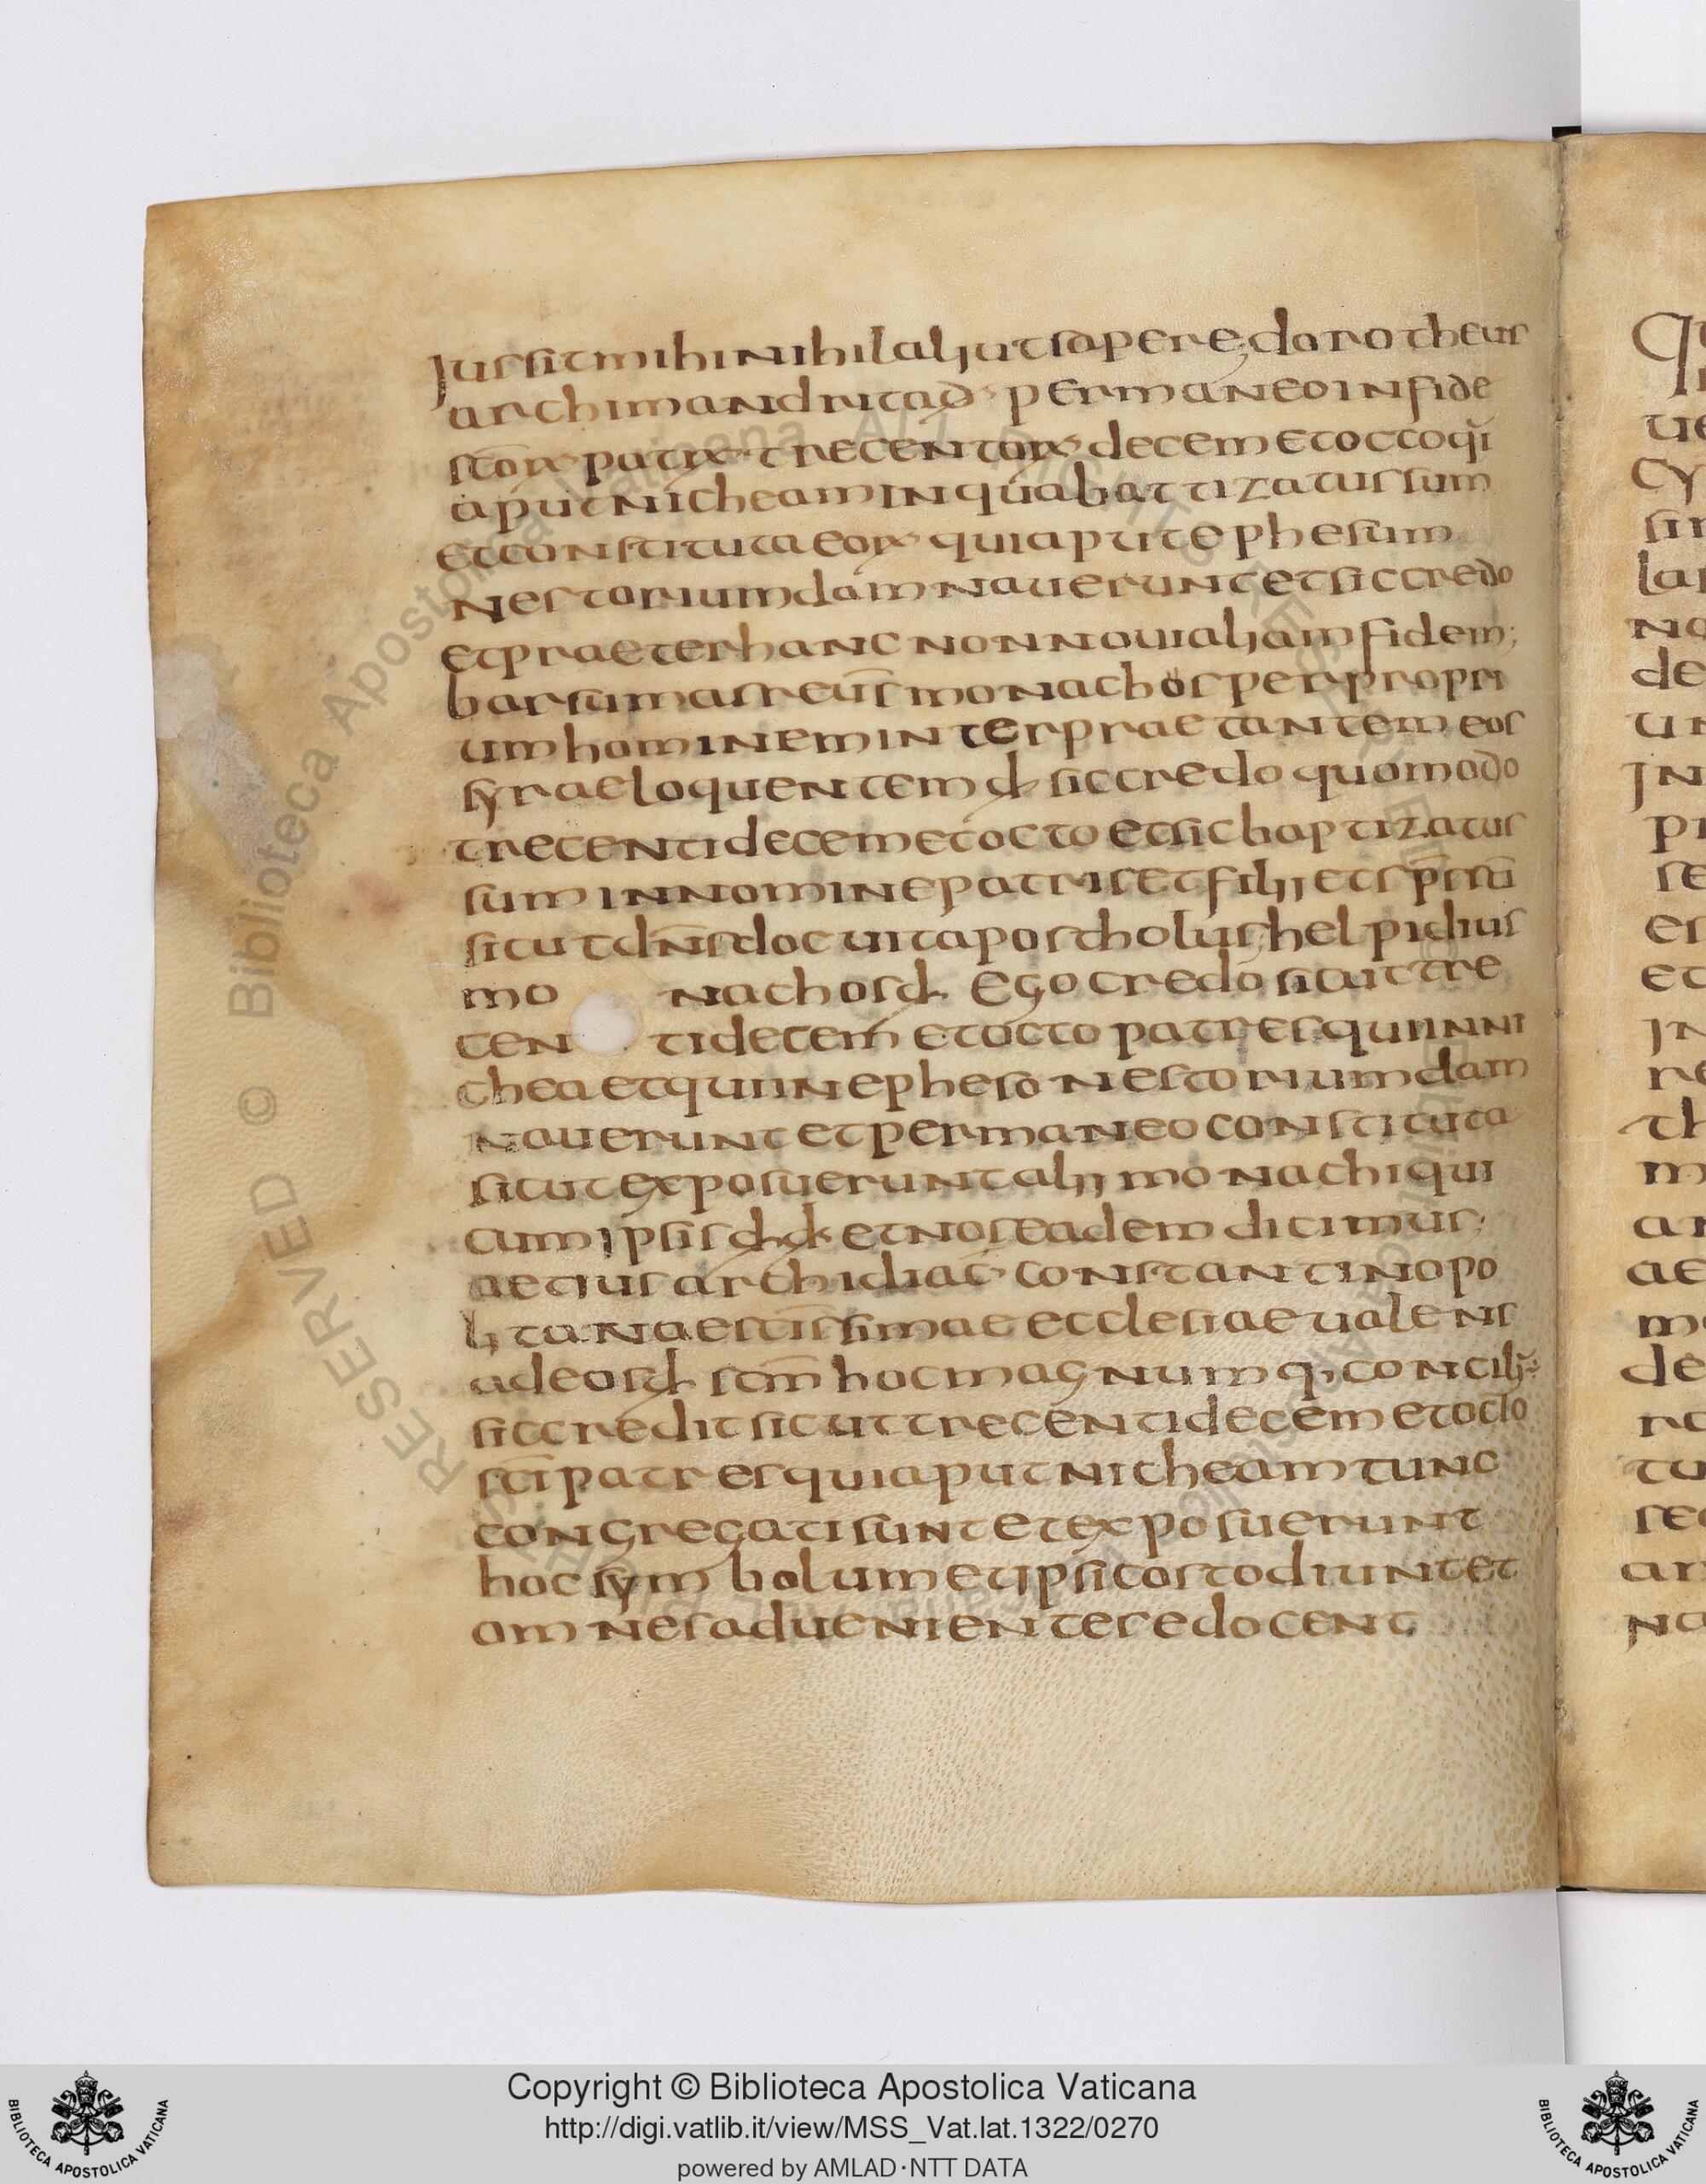 Iussit mihi nihil alii ut sapere; dorotheus
archimandrita d̄ permaneo in fide
sc̄orꝝ patrꝝ trecentorꝝ decem et octo qui
aput nicheam in qua battizatus sum
et constituta eorꝝ qui aput ephesum
nestorium damnauerunt et sic credo
et praeter hanc non noui aliam fidem;
barsumas reūs monachos per propri
um hominem interpraetantem eos
syrae loquentem d̄ sic credo quomodo
trecenti decem et octo et sic baptizatus
sum in nomine patris et filii et sp̄m sc̄i
sicut dn̄s docuit apostholus; helpidius
mo nachos d̄ Ego credo sicut tre
cen ti decem et octo patres qui in ni
chea et qui in epheso nestorium dam
nauerunt et permaneo constituta
sicut exposuerunt alii monachi qui
cum ipsis d̄ d̄ et nos eadem dicimus;
aetius archidiac̄ constantinopo
litanae sc̄issimae ecclesiae ualens
ad eos d̄ sc̄m hoc magnumq· concilī
sic credit sicut trecenti decem et octo
sc̄i patres qui aput nicheam tunc
congregati sunt et exposuerunt
hoc symbolum et ipsi costodiunt et
omnes aduenientes edocent
Copyright © Biblioteca Apostolica Vaticana
http://digi.vatlib.it/view/MSS_Vat.lat.1322/0270
powered by AMLAD·NTT DATA
BIBLIOTECA APOSTOLICA VATICANA
BIBLIOTECA APOSTOLICA VATICANA